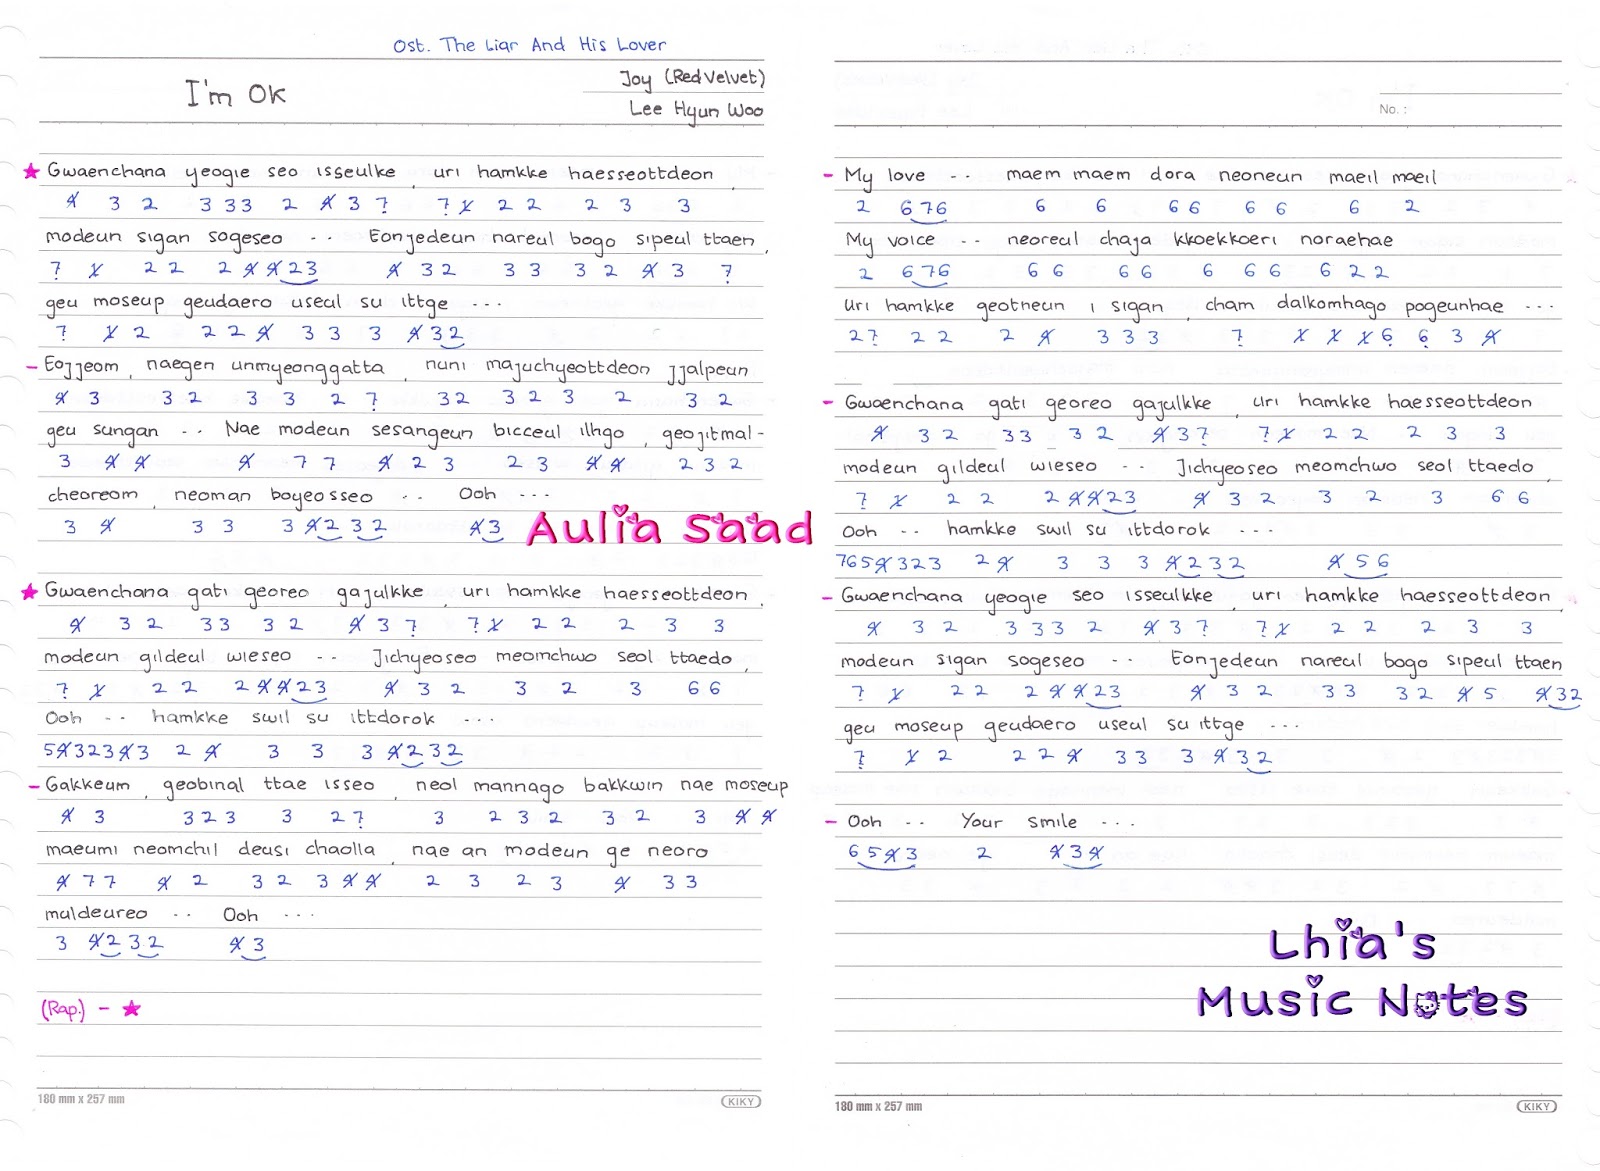 Ost. The Liar And His Lover
I'm Ok
Joy (Red Velvet)
Lee Hyun Woo
★ Gwaenchana yeogie seo isseulke, uri hamkke haesseottdeon,
4̸ 3 2 3 3 3 2 4̸ 3 7̣ 7̣ 1̸ 2 2 2 3 3
modeun sigan sogeseo -- Eonjedeun nareul bogo sipeul ttaen,
7̣ 1̸ 2 2 2 4̸ 4̸ 2 3 4̸ 3 2 3 3 3 2 4̸ 3 7̣
geu moseup geudaero useul su ittge ---
7̣ 1̸ 2 2 2 4̸ 3 3 3 4̸ 3 2
- Eojjeom, naegen unmyeonggatta, nuni majuchyeottdeon jjalpeun
4̸ 3 3 2 3 3 2 7̣ 3 2 3 2 3 2 3 2
geu sungan -- Nae modeun sesangeun bicceul ilhgo, geojitmal-
3 4̸ 4̸ 4̸ 7 7 4̸ 2 3 2 3 4̸ 4̸ 2 3 2
cheoreom, neoman boyeosseo -- Ooh ---
3 4̸ 3 3 3 4̸ 2 3 2 4̸ 3
Aulia Saad
★ Gwaenchana gati georeo gajulkke, uri hamkke haesseottdeon,
4̸ 3 2 3 3 3 2 4̸ 3 7̣ 7̣ 1̸ 2 2 2 3 3
modeun gildeul wieseo -- Jichyeoseo meomchwo seol ttaedo,
7̣ 1̸ 2 2 2 4̸ 4̸ 2 3 4̸ 3 2 3 2 3 6 6
Ooh -- hamkke swil su ittdorok ---
5 4̸ 3 2 3 4̸ 3 2 4̸ 3 3 3 4̸ 2 3 2
- Gakkeum, geobinal ttae isseo, neol mannago bakkwin nae moseup
4̸ 3 3 2 3 3 2 7̣ 3 2 3 2 3 2 3 4̸ 4̸
maeumi neomchil deusi chaolla, nae an modeun ge neoro
4̸ 7 7 4̸ 2 3 2 3 4̸ 4̸ 2 3 2 3 4̸ 3 3
muldeureo -- Ooh ---
3 4̸ 2 3 2 4̸ 3
(Rap.) - ★
180 mm x 257 mm
KIKY
No. :
- My love -- maem maem dora neoneun maeil maeil
2 6 7 6 6 6 6 6 6 6 6 2
My voice -- neoreul chaja kkoekkoeri noraehae
2 6 7 6 6 6 6 6 6 6 6 6 2 2
uri hamkke geotneun i sigan, cham dalkomhago pogeunhae ---
2 7̣ 2 2 2 4̸ 3 3 3 7̣ 1̸ 1̸ 1̸ 6̣ 6̣ 3 4̸
- Gwaenchana gati georeo gajulkke, uri hamkke haesseottdeon
4̸ 3 2 3 3 3 2 4̸ 3 7̣ 7̣ 1̸ 2 2 2 3 3
modeun gildeul wieseo -- Jichyeoseo meomchwo seol ttaedo,
7̣ 1̸ 2 2 2 4̸ 4̸ 2 3 4̸ 3 2 3 2 3 6 6
Ooh -- hamkke swil su ittdorok ---
7 6 5 4̸ 3 2 3 2 4̸ 3 3 3 4̸ 2 3 2 4̸ 5 6
- Gwaenchana yeogie seo isseulkke, uri hamkke haesseottdeon,
4̸ 3 2 3 3 3 2 4̸ 3 7̣ 7̣ 1̸ 2 2 2 3 3
modeun sigan sogeseo -- Eonjedeun nareul bogo sipeul ttaen
7̣ 1̸ 2 2 2 4̸ 4̸ 2 3 4̸ 3 2 3 3 3 2 4̸ 5 4̸ 3 2
geu moseup geudaero useul su ittge ---
7̣ 1̸ 2 2 2 4̸ 3 3 3 4̸ 3 2
- Ooh -- Your smile ---
6 5 4̸ 3 2 4̸ 3 4̸
Lhia's
Music Notes
180 mm x 257 mm
KIKY